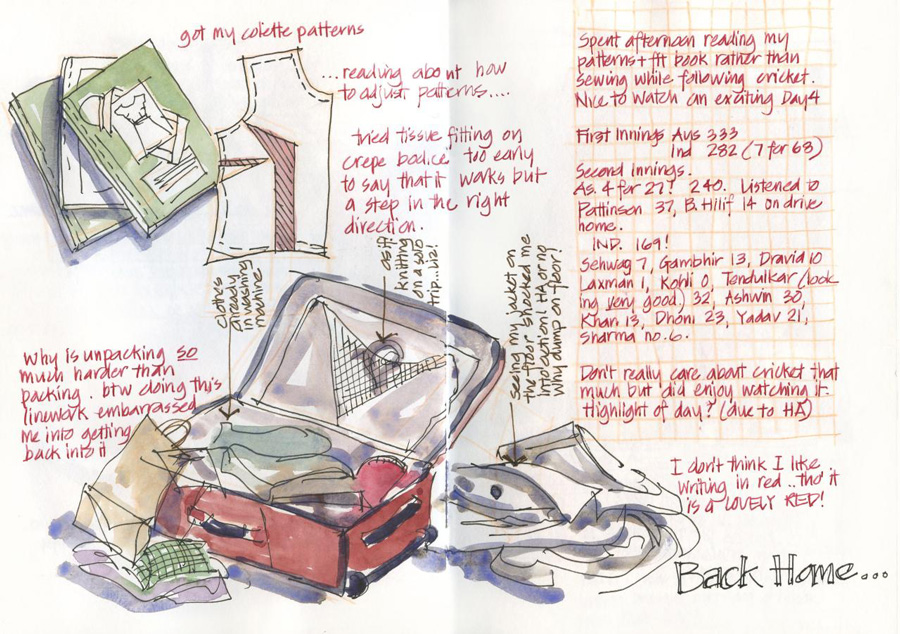 got my colette patterns
...reading about how
to adjust patterns....
tried tissue fitting on
crepe bodice too early
to say that it works but
a step in the right
direction.
clothes
already
in washing
machine
as if
knitting
on a solo
trip...Liz!
seeing my jacket on
the floor shocked me
into action! HA or no
Why dump on floor?
Why is unpacking so
much harder than
packing. btw doing this
linework embarrassed
me into getting
back into it
Spent afternoon reading my
patterns + fit book rather than
sewing while following cricket.
Nice to watch an exciting Day 4
First Innings Aus 333
Ind 282 (7 for 68)
Second Innings.
As. 4 for 27? 240. Listened to
Pattinson 37, B. Hilf 14 on drive
home.
IND. 169!
Sehwag 7, Gambhir 13, Dravid 10
Laxman 1, Kohli 0, Tendulkar (look
ing very good) 32, Ashwin 30,
Khan 13, Dhoni 23, Yadav 21,
Sharma no. 6.
Don't really care about cricket that
much but did enjoy watching it.
Highlight of day? (due to HA)
I don't think I like
writing in red..tho it
is a LOVELY RED!
Back Home...